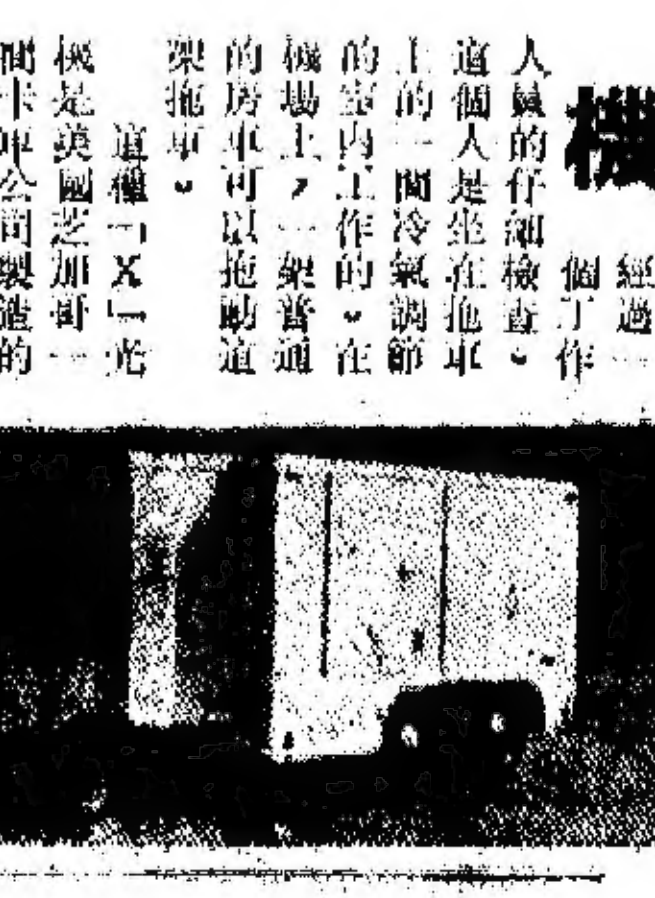 機
經過一
個工作
人員的仔細檢查。
這個人是坐在拖車
上的一間冷氣調節
的室內工作的。在
機場上，一架普通
的房車可以拖動這
架拖車。
這種「X」光
機是美國芝加哥一
間卡車公司製造的